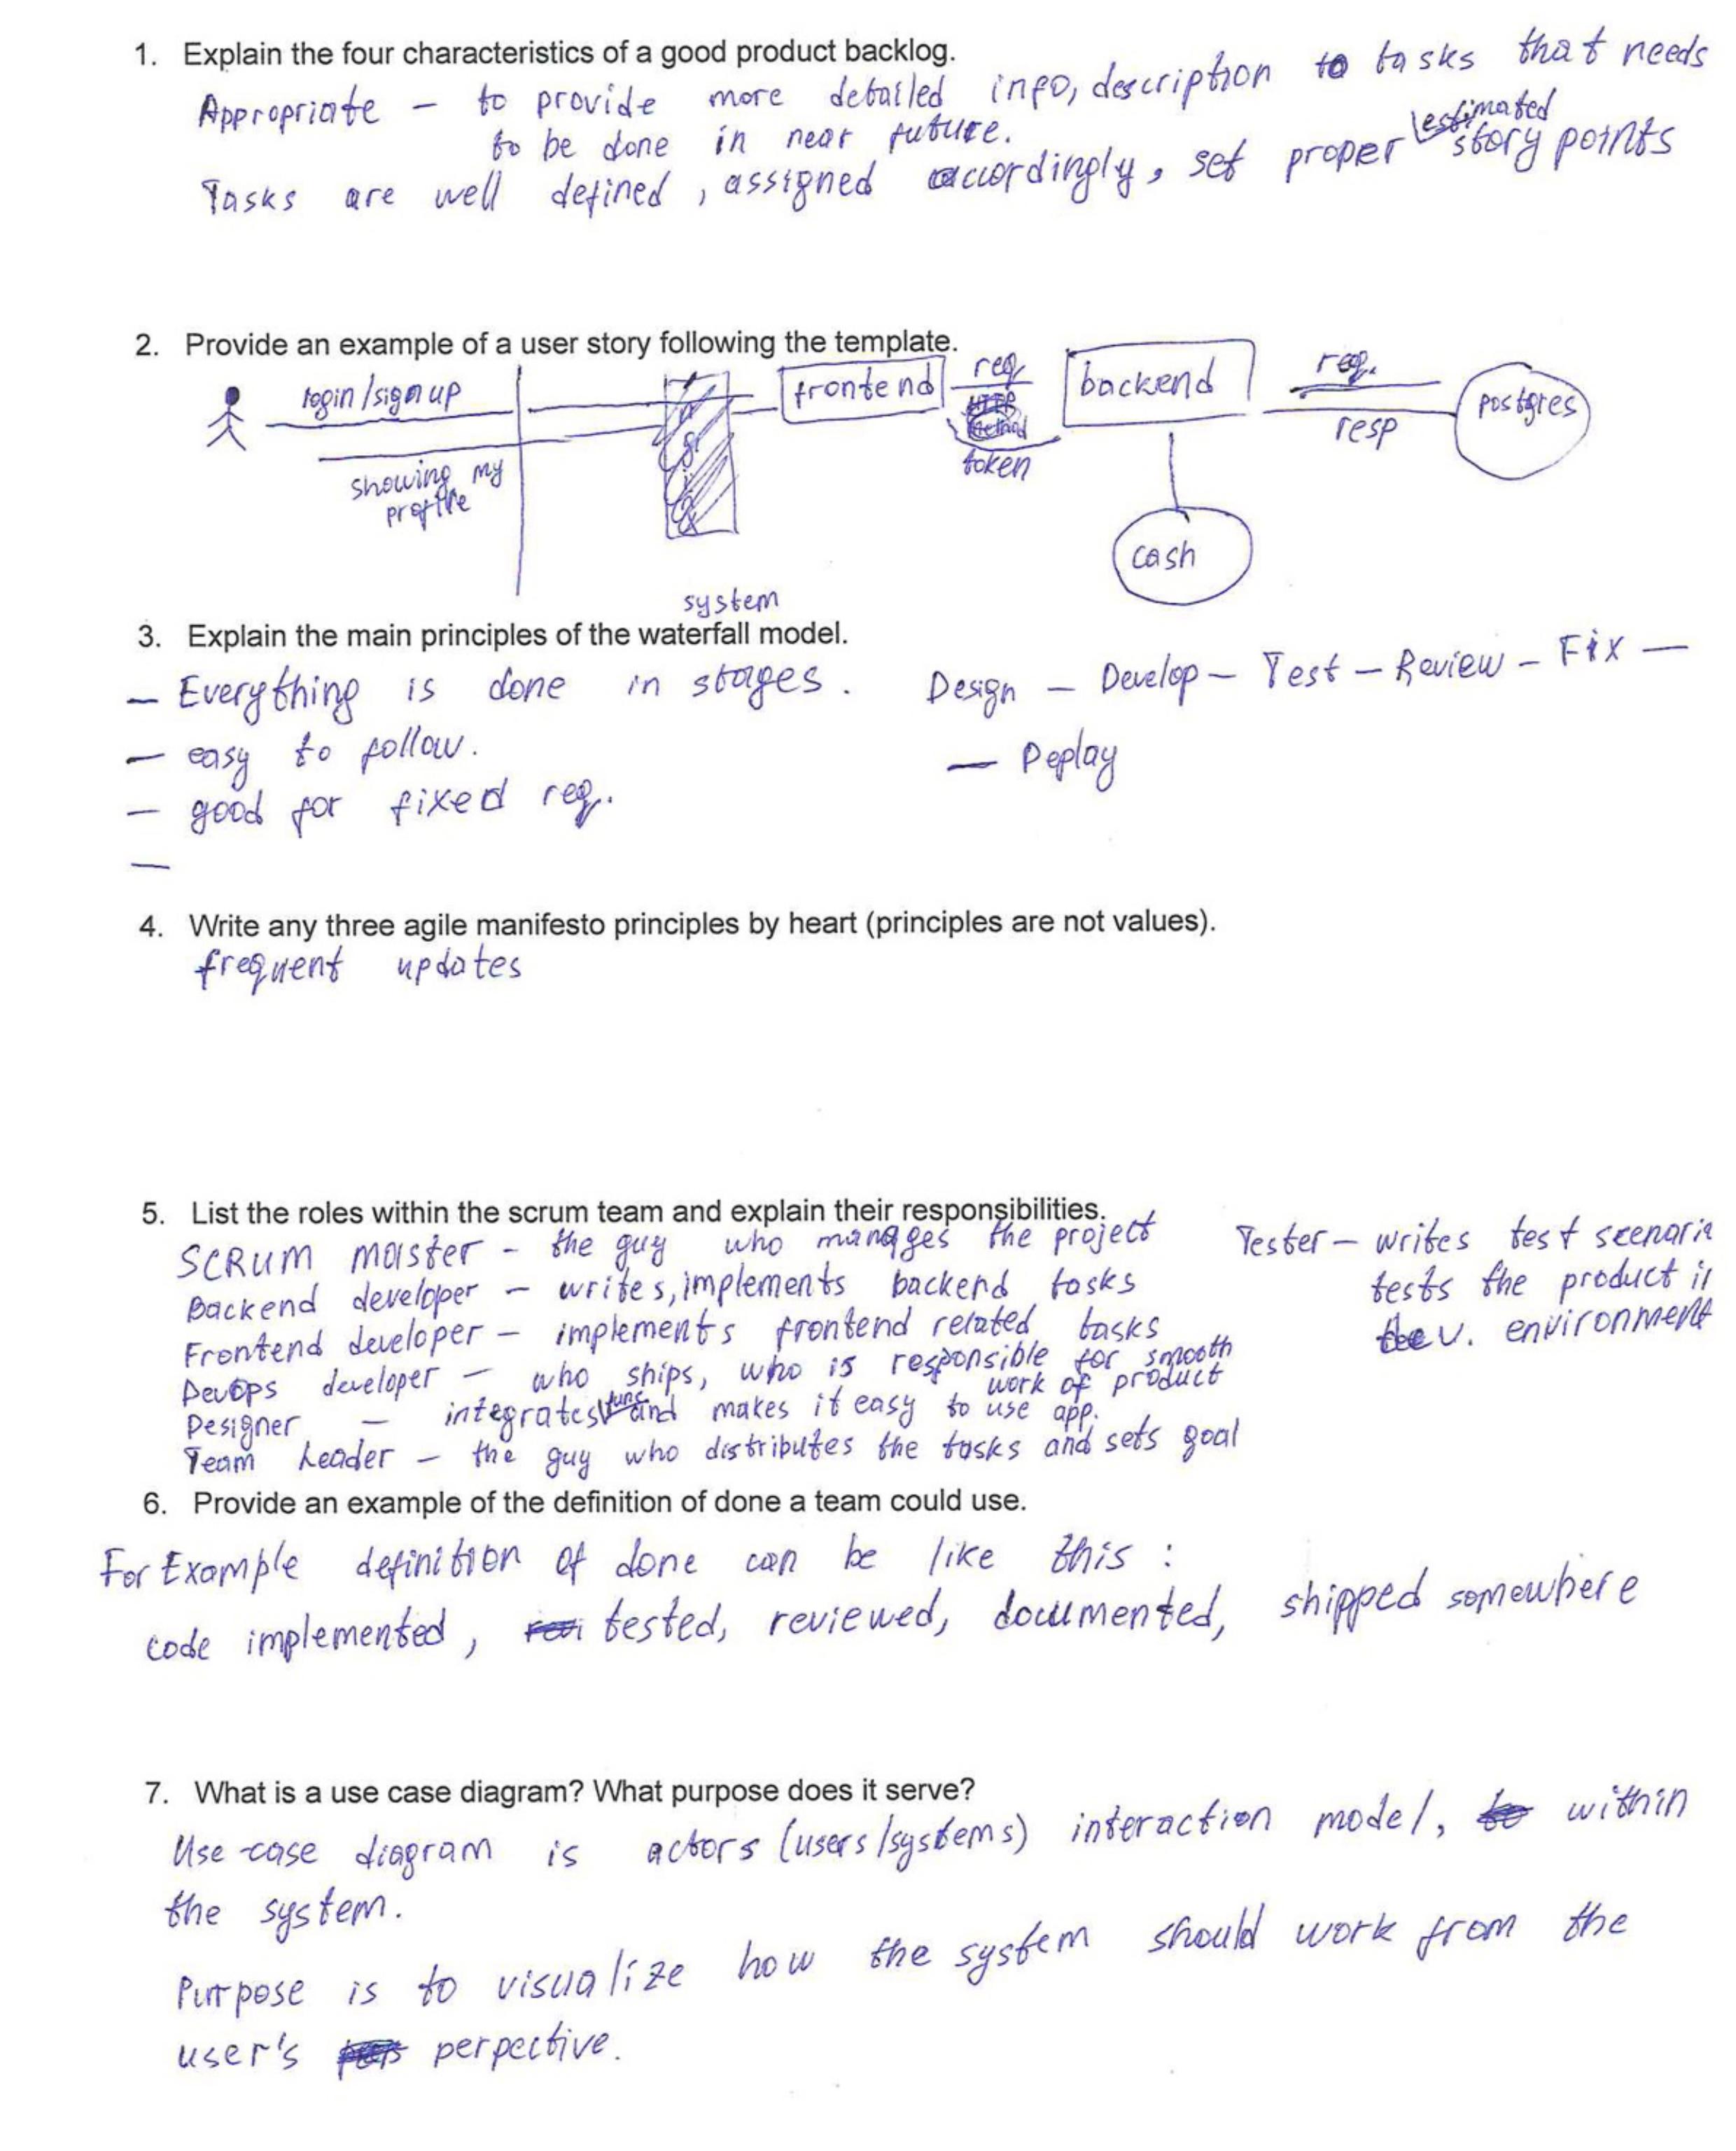 1. Explain the four characteristics of a good product backlog.
Appropriate - to provide more detailed info, description to tasks that needs
to be done in near future.
Tasks are well defined, assigned accordingly, set proper estimated story points
2. Provide an example of a user story following the template.
login/sign up
showing my
profile
frontend
req
token
backend
req.
resp
postgres
cash
system
3. Explain the main principles of the waterfall model.
- Everything is done in stages. Design - Develop - Test - Review - Fix -
- easy to follow. - Deploy
- good for fixed req.
-
4. Write any three agile manifesto principles by heart (principles are not values).
frequent updates
5. List the roles within the scrum team and explain their responsibilities.
SCRUM master - the guy who manages the project
Backend developer - writes, implements backend tasks
Frontend developer - implements frontend related tasks
DevOps developer - who ships, who is responsible for smooth
work of product
Designer - integrates func and makes it easy to use app.
Team Leader - the guy who distributes the tasks and sets goal
Tester - writes test scenario
tests the product in
dev. environment
6. Provide an example of the definition of done a team could use.
For Example definition of done can be like this:
code implemented, tested, reviewed, documented, shipped somewhere
7. What is a use case diagram? What purpose does it serve?
Use-case diagram is actors (users/systems) interaction model, within
the system.
Purpose is to visualize how the system should work from the
user's perpective.